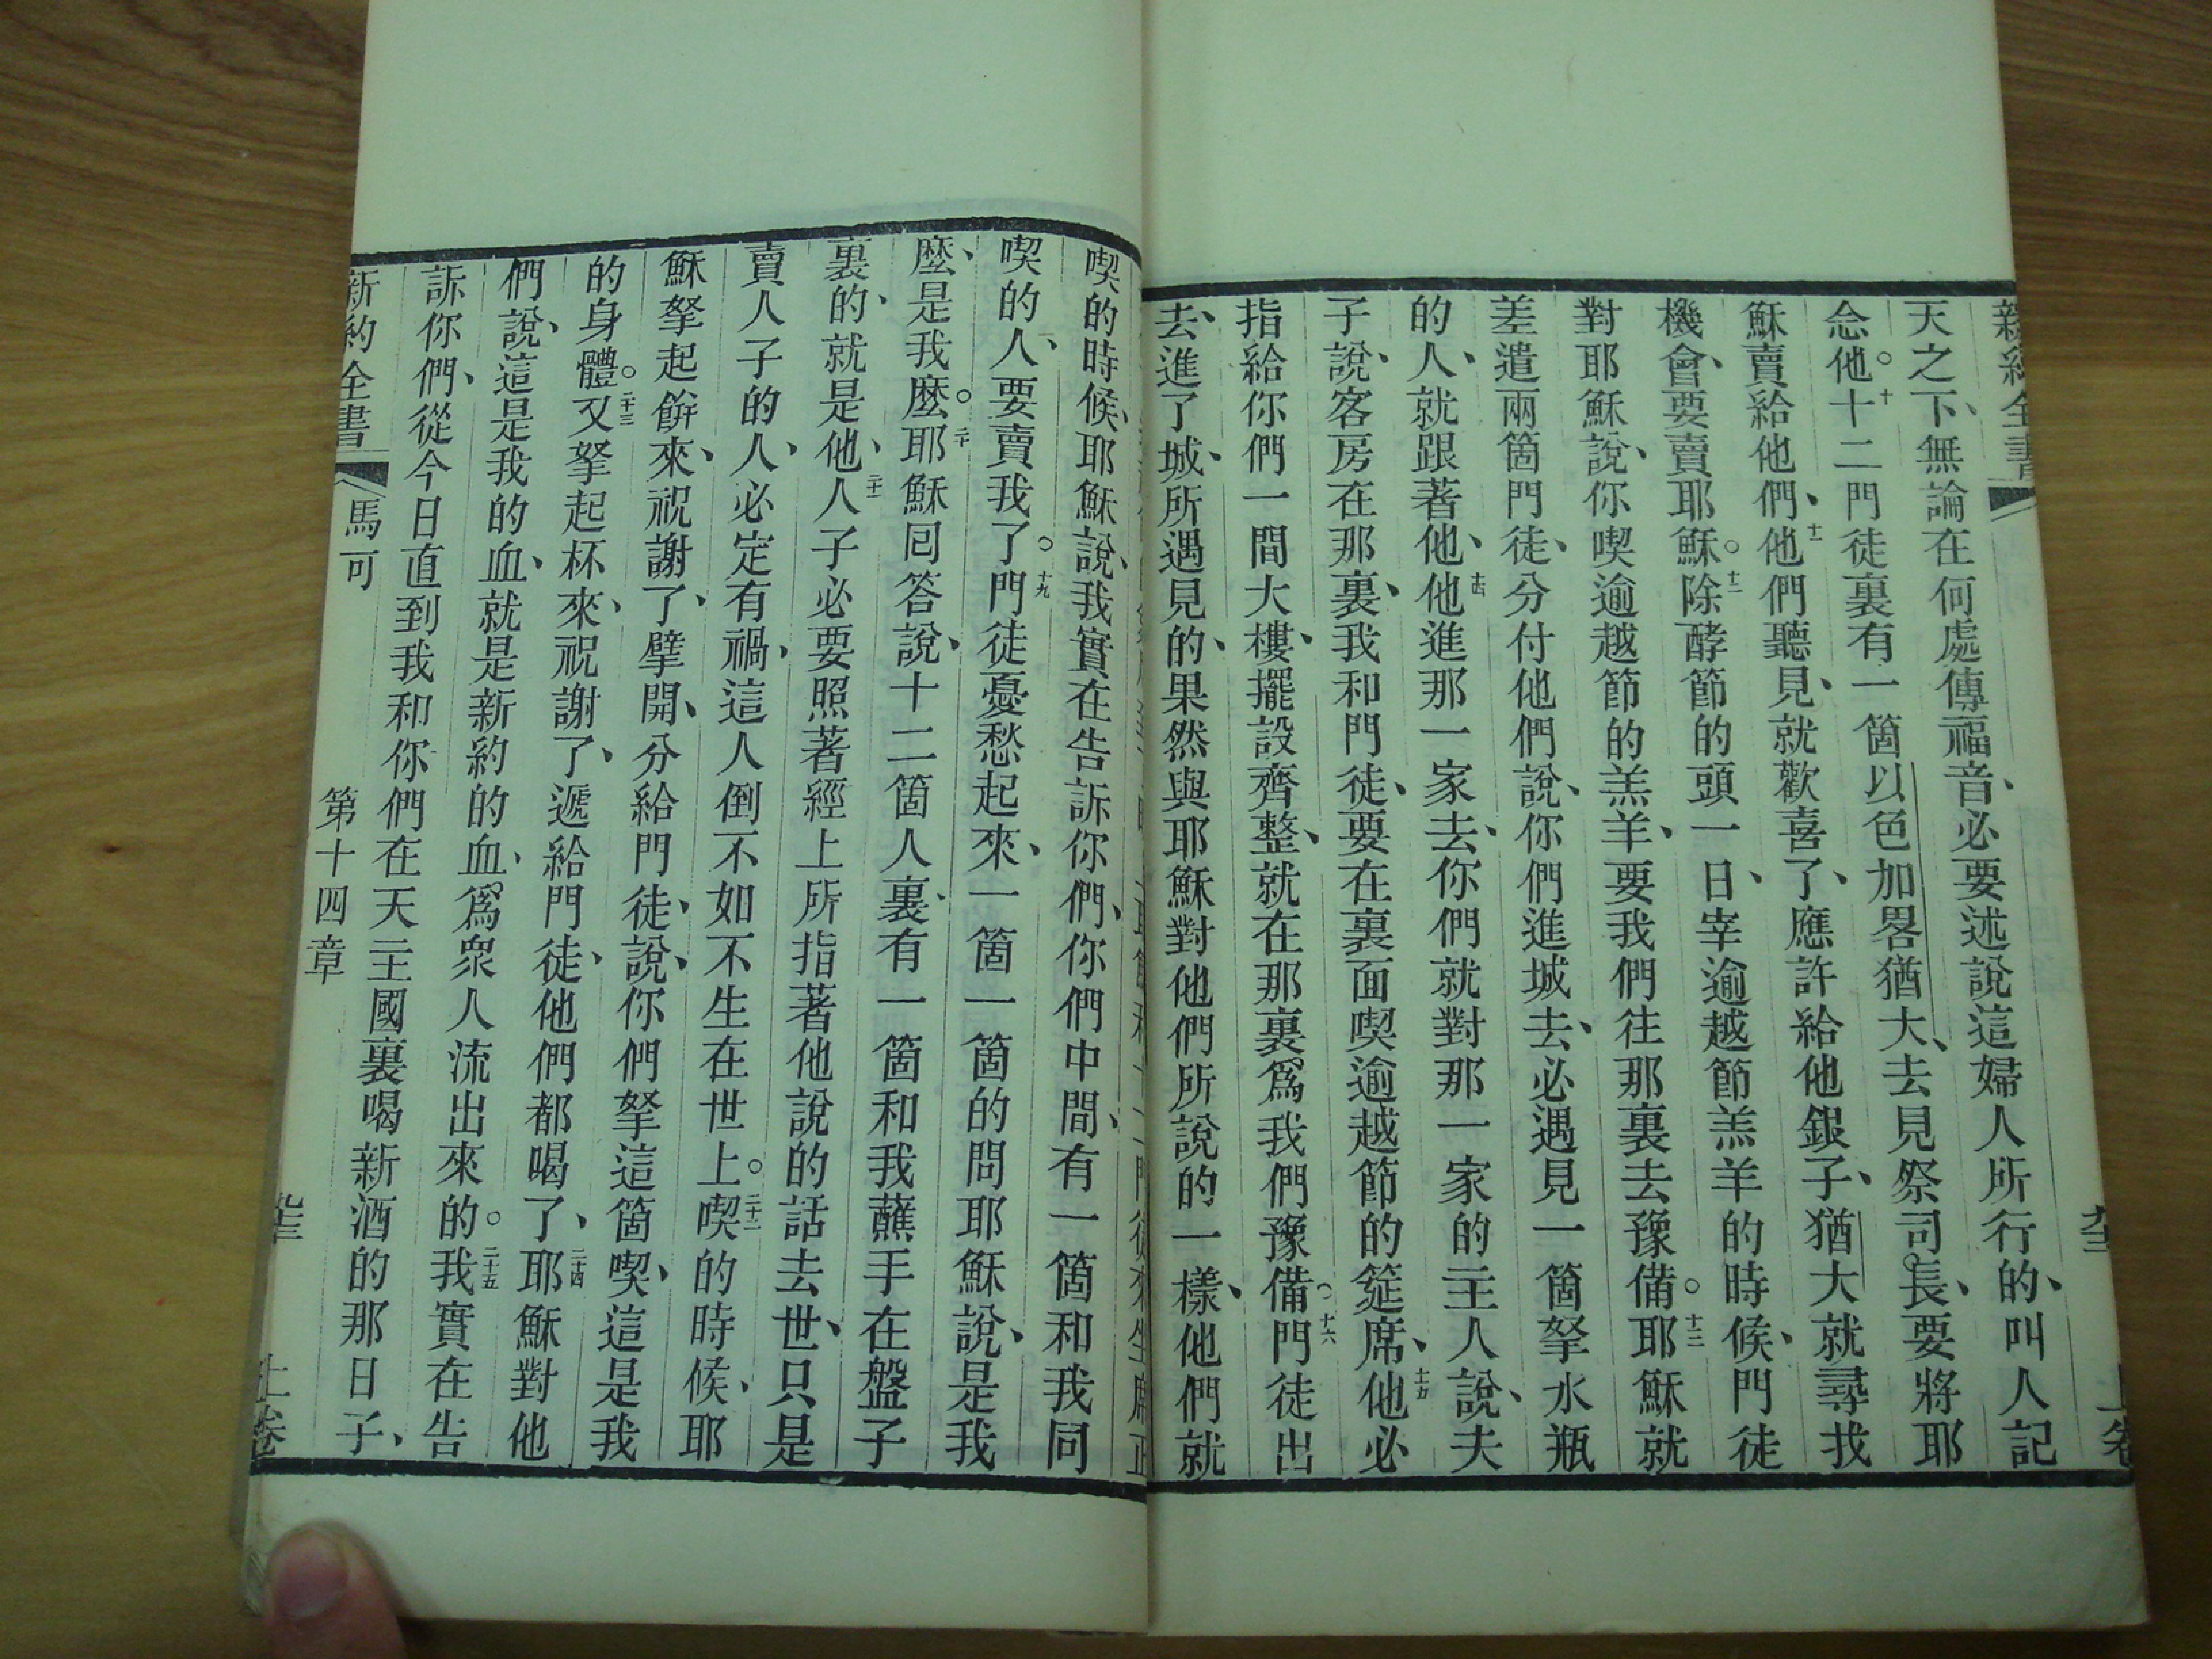 新約全書
上卷
天之下、無論在何處傳福音、必要述說這婦人所行的、叫人記
念他。十十二門徒裏有一箇以色加畧猶大、去見祭司長、要將耶
穌賣給他們、十一他們聽見、就歡喜了、應許給他銀子、猶大就尋找
機會、要賣耶穌。十二除酵節的頭一日、宰逾越節羔羊的時候、門徒
對耶穌說、你喫逾越節的羔羊、要我們往那裏去豫備。十三耶穌就
差遣兩箇門徒、分付他們說、你們進城去、必遇見一箇拏水瓶
的人、就跟著他、十四他進那一家去、你們就對那一家的主人說、夫
子說、客房在那裏、我和門徒、要在裏面喫逾越節的筵席、十五他必
指給你們一間大樓、擺設齊整、就在那裏爲我們豫備。十六門徒出
去、進了城、所遇見的、果然與耶穌對他們所說的一樣、他們就
喫的時候、耶穌說、我實在告訴你們、你們中間、有一箇和我同
喫的人、要賣我了。十九門徒憂愁起來、一箇一箇的問耶穌說、是我
麼、是我麼。二十耶穌回答說、十二箇人裏、有一箇和我蘸手在盤子
裏的、就是他、二十一人子必要照著經上所指著他說的話去世、只是
賣人子的人、必定有禍、這人倒不如不生在世上。二十二喫的時候、耶
穌拏起餅來、祝謝了、擘開、分給門徒、說、你們拏這箇喫、這是我
的身體。二十三又拏起杯來、祝謝了、遞給門徒、他們都喝了、二十四耶穌對他
們說、這是我的血、就是新約的血、爲衆人流出來的。二十五我實在告
訴你們、從今日直到我和你們在天主國裏喝新酒的那日子、
新約全書 馬可 第十四章 上卷